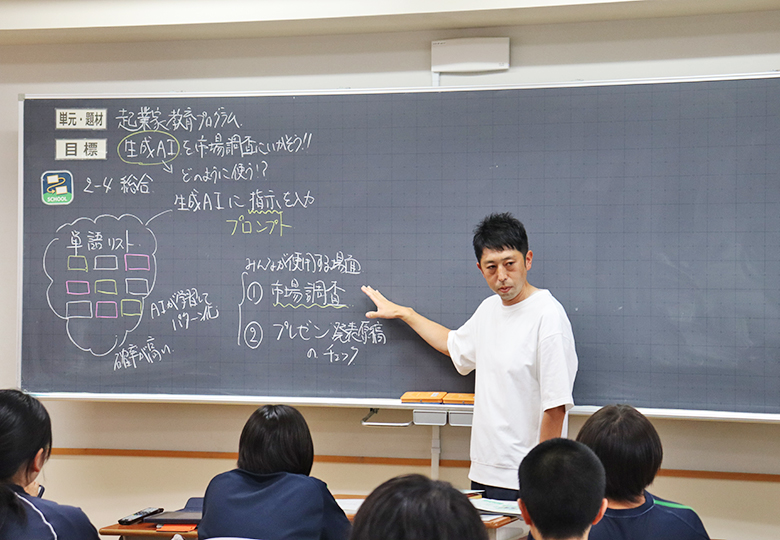 単元・題材 起業家教育プログラム
目標 生成AIを市場調査にいかそう!!
どのように使う!?
SCHOOL 2-4 総合
生成AIに指示を入力
プロンプト
単語リスト
AIが学習して
パターン化
確率が高い
みんなが使用する場面
① 市場調査
② プレゼン発表原稿
のチェック